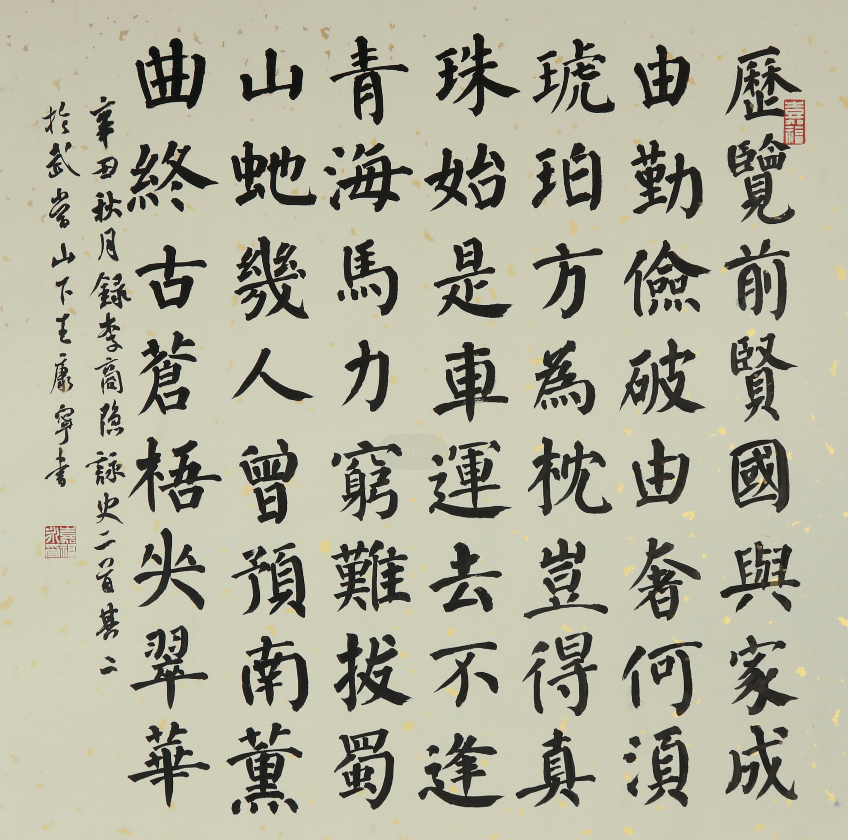 歷覽前賢國與家成
由勤儉破由奢何湏
琥珀方為枕豈得真
珠始是車運去不逢
青海馬力窮難拔蜀
山虵幾人曾預南薰
曲終古蒼梧哭翠華
辛丑秋月録李商隐詠史二首其二
於武當山下康寧書